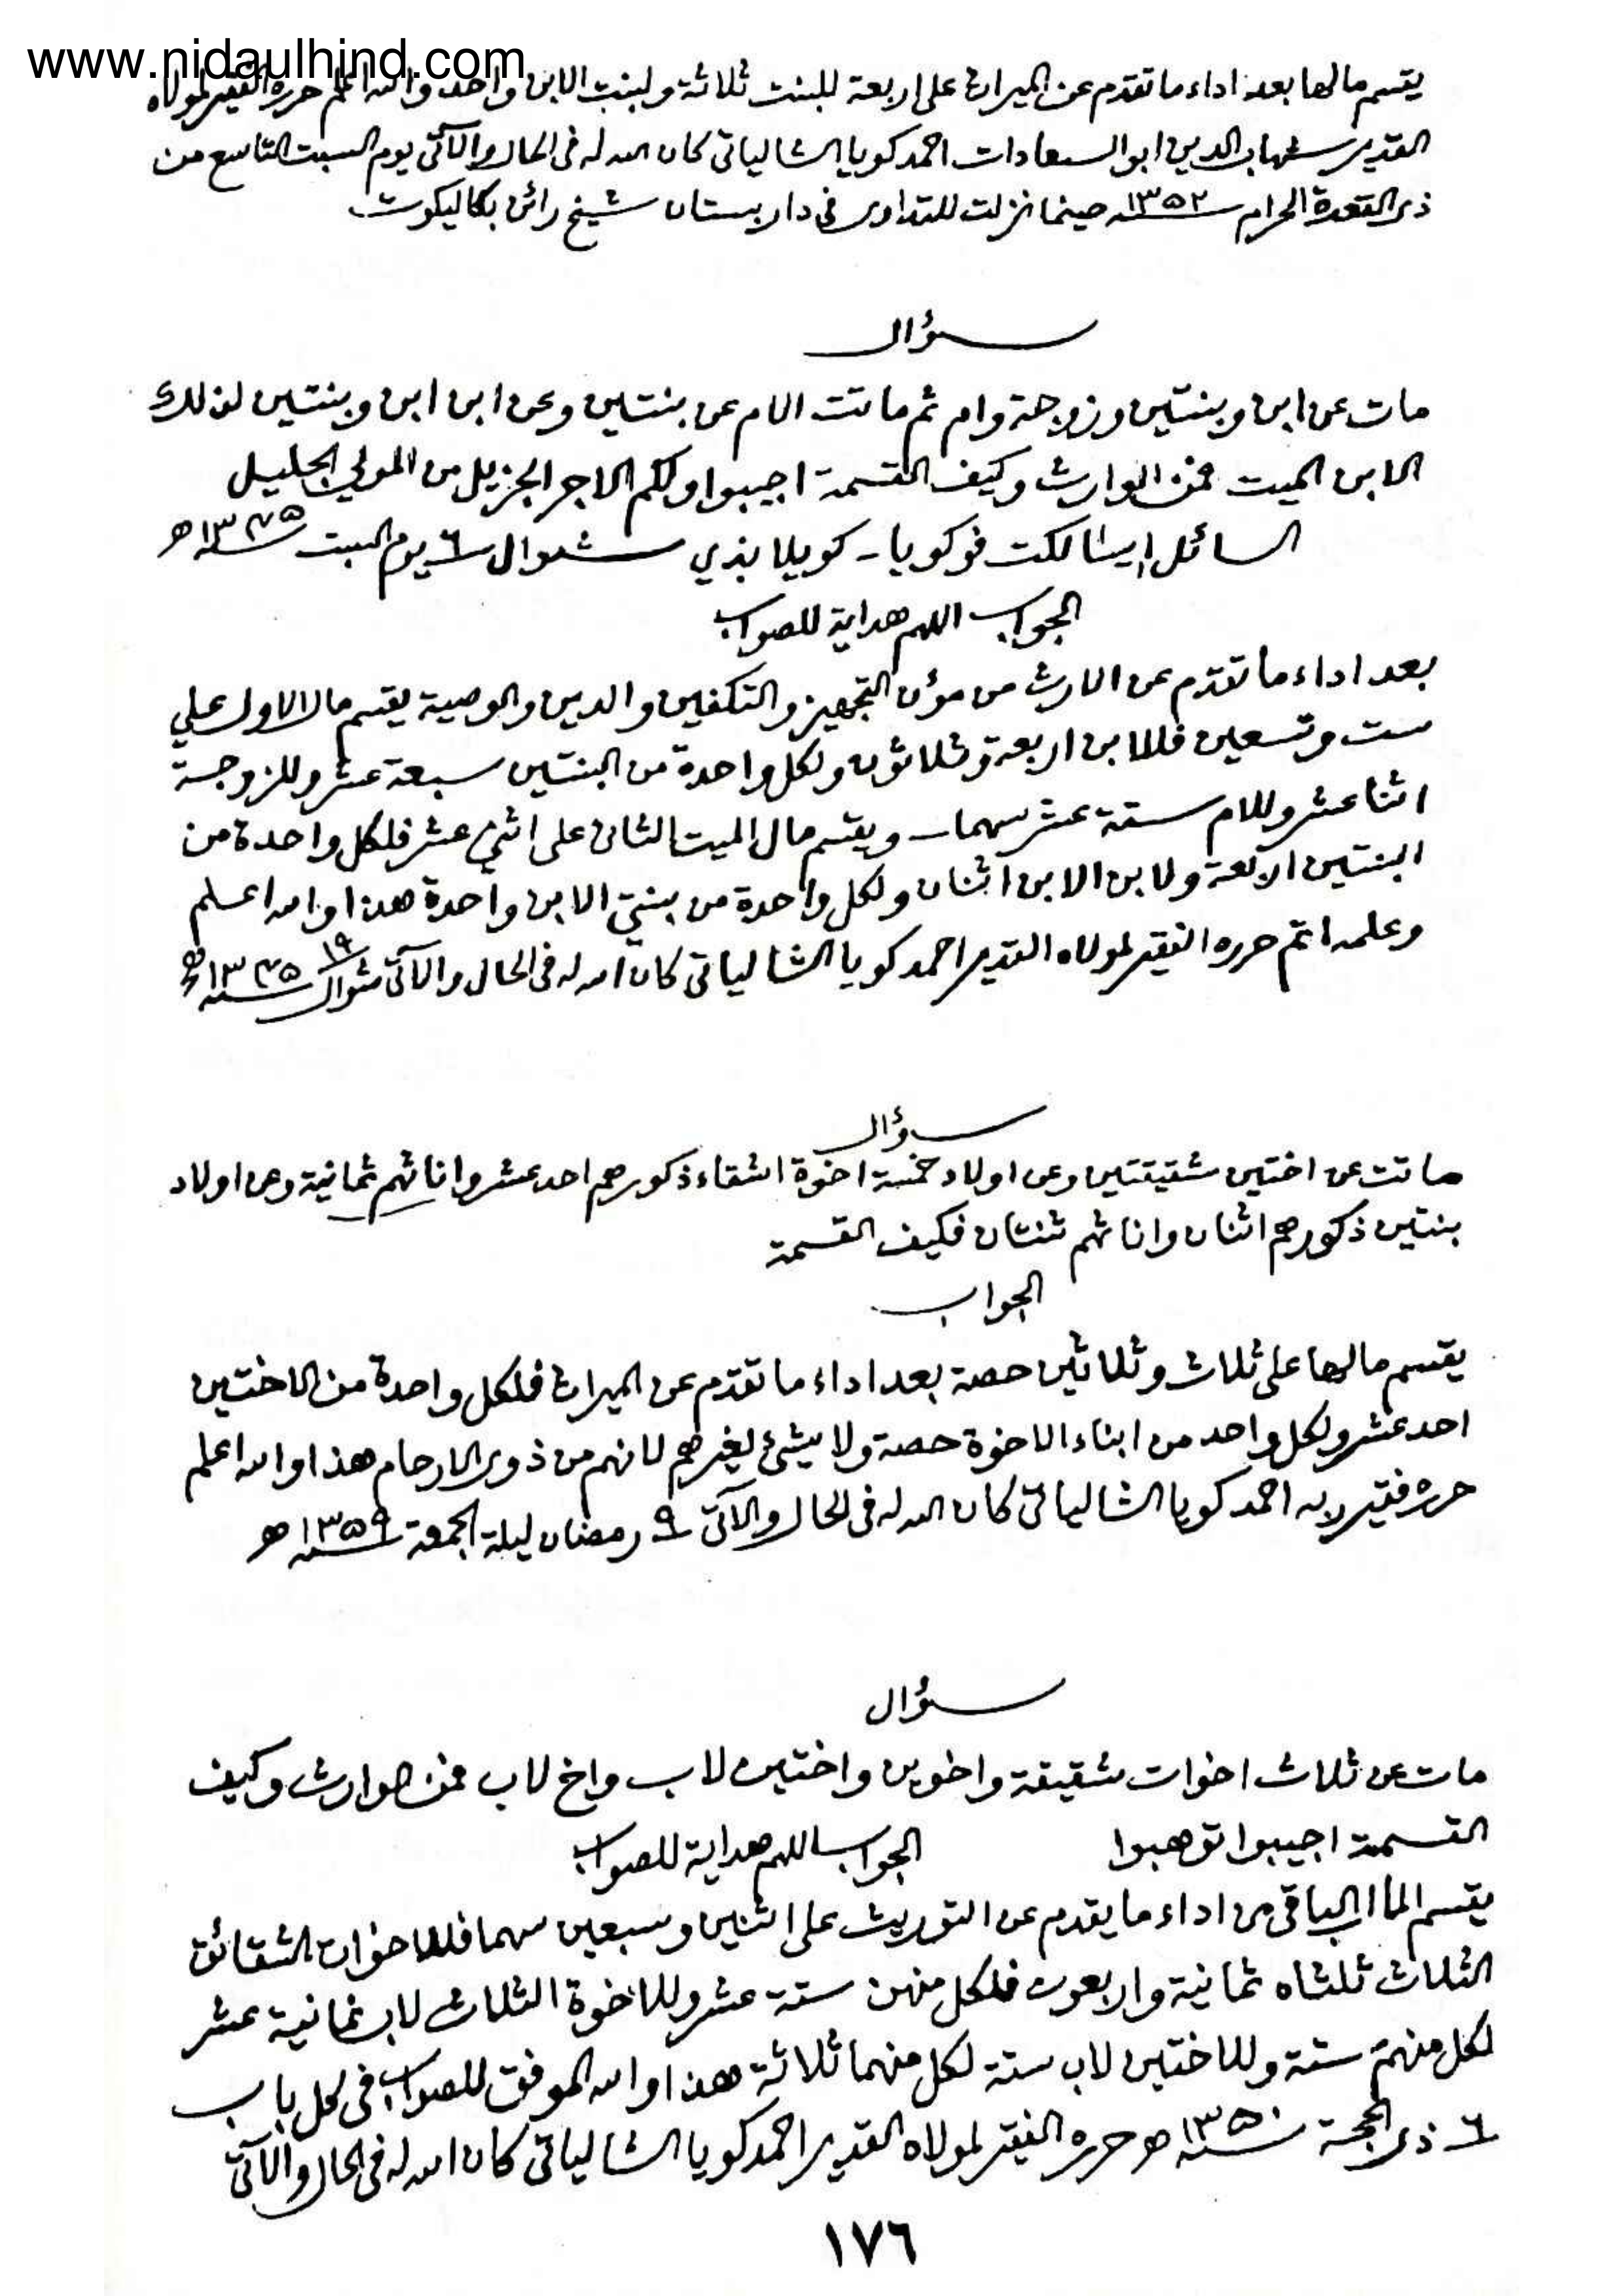 www.nidaulhind.com
يقسم مالها بعد اداء ما تقدم عن الميراث على اربعة للبنت ثلاثة ولبنت الابن واحد والله اعلم حرره الفقير لمولاه
القدير شهاب الدين ابو السعادات احمد كويا الشالياتي كان الله له في الحال والآتي يوم السبت التاسع من
ذي القعدة الحرام سنة ١٣٥٢ حينما نزلت للتداوي في داربستان شيخ رائن بكاليكوت
سؤال
مات عن ابن وبنتين وزوجة وام ثم ماتت الام عن بنتين وعن ابن ابن وبنتين لذلك
الابن الميت فمن الوارث وكيف القسمة اجيبوا ولكم الاجر الجزيل من المولى الجليل
السائل ايشالكت فوكويا - كويلا بذي شوال ٦ يوم السبت سنة ١٣٧٥ ه
الجواب اللهم هداية للصواب
بعد اداء ما تقدم عن الارث من مؤن التجهيز والتكفين والدين والوصية يقسم مال الاول علي
ست وتسعين فللابن اربعة وثلاثون ولكل واحدة من البنتين سبعة عشر وللزوجة
اثنا عشر وللام ستة عشر سهما ويقسم مال الميت الثاني على اثني عشر فلكل واحدة من
البنتين اربعة ولابن الابن اثنان ولكل واحدة من بنتي الابن واحدة هذا والله اعلم
وعلمه اتم حرره الفقير لمولاه القدير احمد كويا الشالياتي كان الله له في الحال والآتي ١٩ شوال سنة ١٣٧٥ ه
سؤال
ماتت عن اختين شقيقتين وعن اولاد خمسة اخوة اشقاء ذكورهم احد عشر واناثهم ثمانية وعن اولاد
بنتين ذكورهم اثنان واناثهم ثنتان فكيف القسمة
الجواب
يقسم مالها على ثلاث وثلاثين حصة بعد اداء ما تقدم عن الميراث فلكل واحدة من الاختين
احد عشر ولكل واحد من ابناء الاخوة حصة ولا شيئ لغيرهم لانهم من ذوي الارحام هذا والله اعلم
حرره فقير ربه احمد كويا الشالياتي كان الله له في الحال والآتي ٩ رمضان ليلة الجمعة سنة ١٣٥٩ ه
سؤال
مات عن ثلاث اخوات شقيقة واخوين واختين لاب واخ لاب فمن الوارث وكيف
القسمة اجيبوا توهبوا الجواب اللهم هداية للصواب
يقسم المال الباقي من اداء ما يقدم عن التوريث على اثنين وسبعين سهما فللاخوات الشقائق
الثلاث ثلثاه ثمانية واربعون فلكل منهن ستة عشر وللاخوة الثلاث لاب ثمانية عشر
لكل منهم ستة وللاختين لاب ستة لكل منهما ثلاثة هذا والله الموفق للصواب في كل باب
٦ ذي الحجة سنة ١٣٥٠ ه حرره الفقير لمولاه القدير احمد كويا الشالياتي كان الله له في الحال والآتي
١٧٦